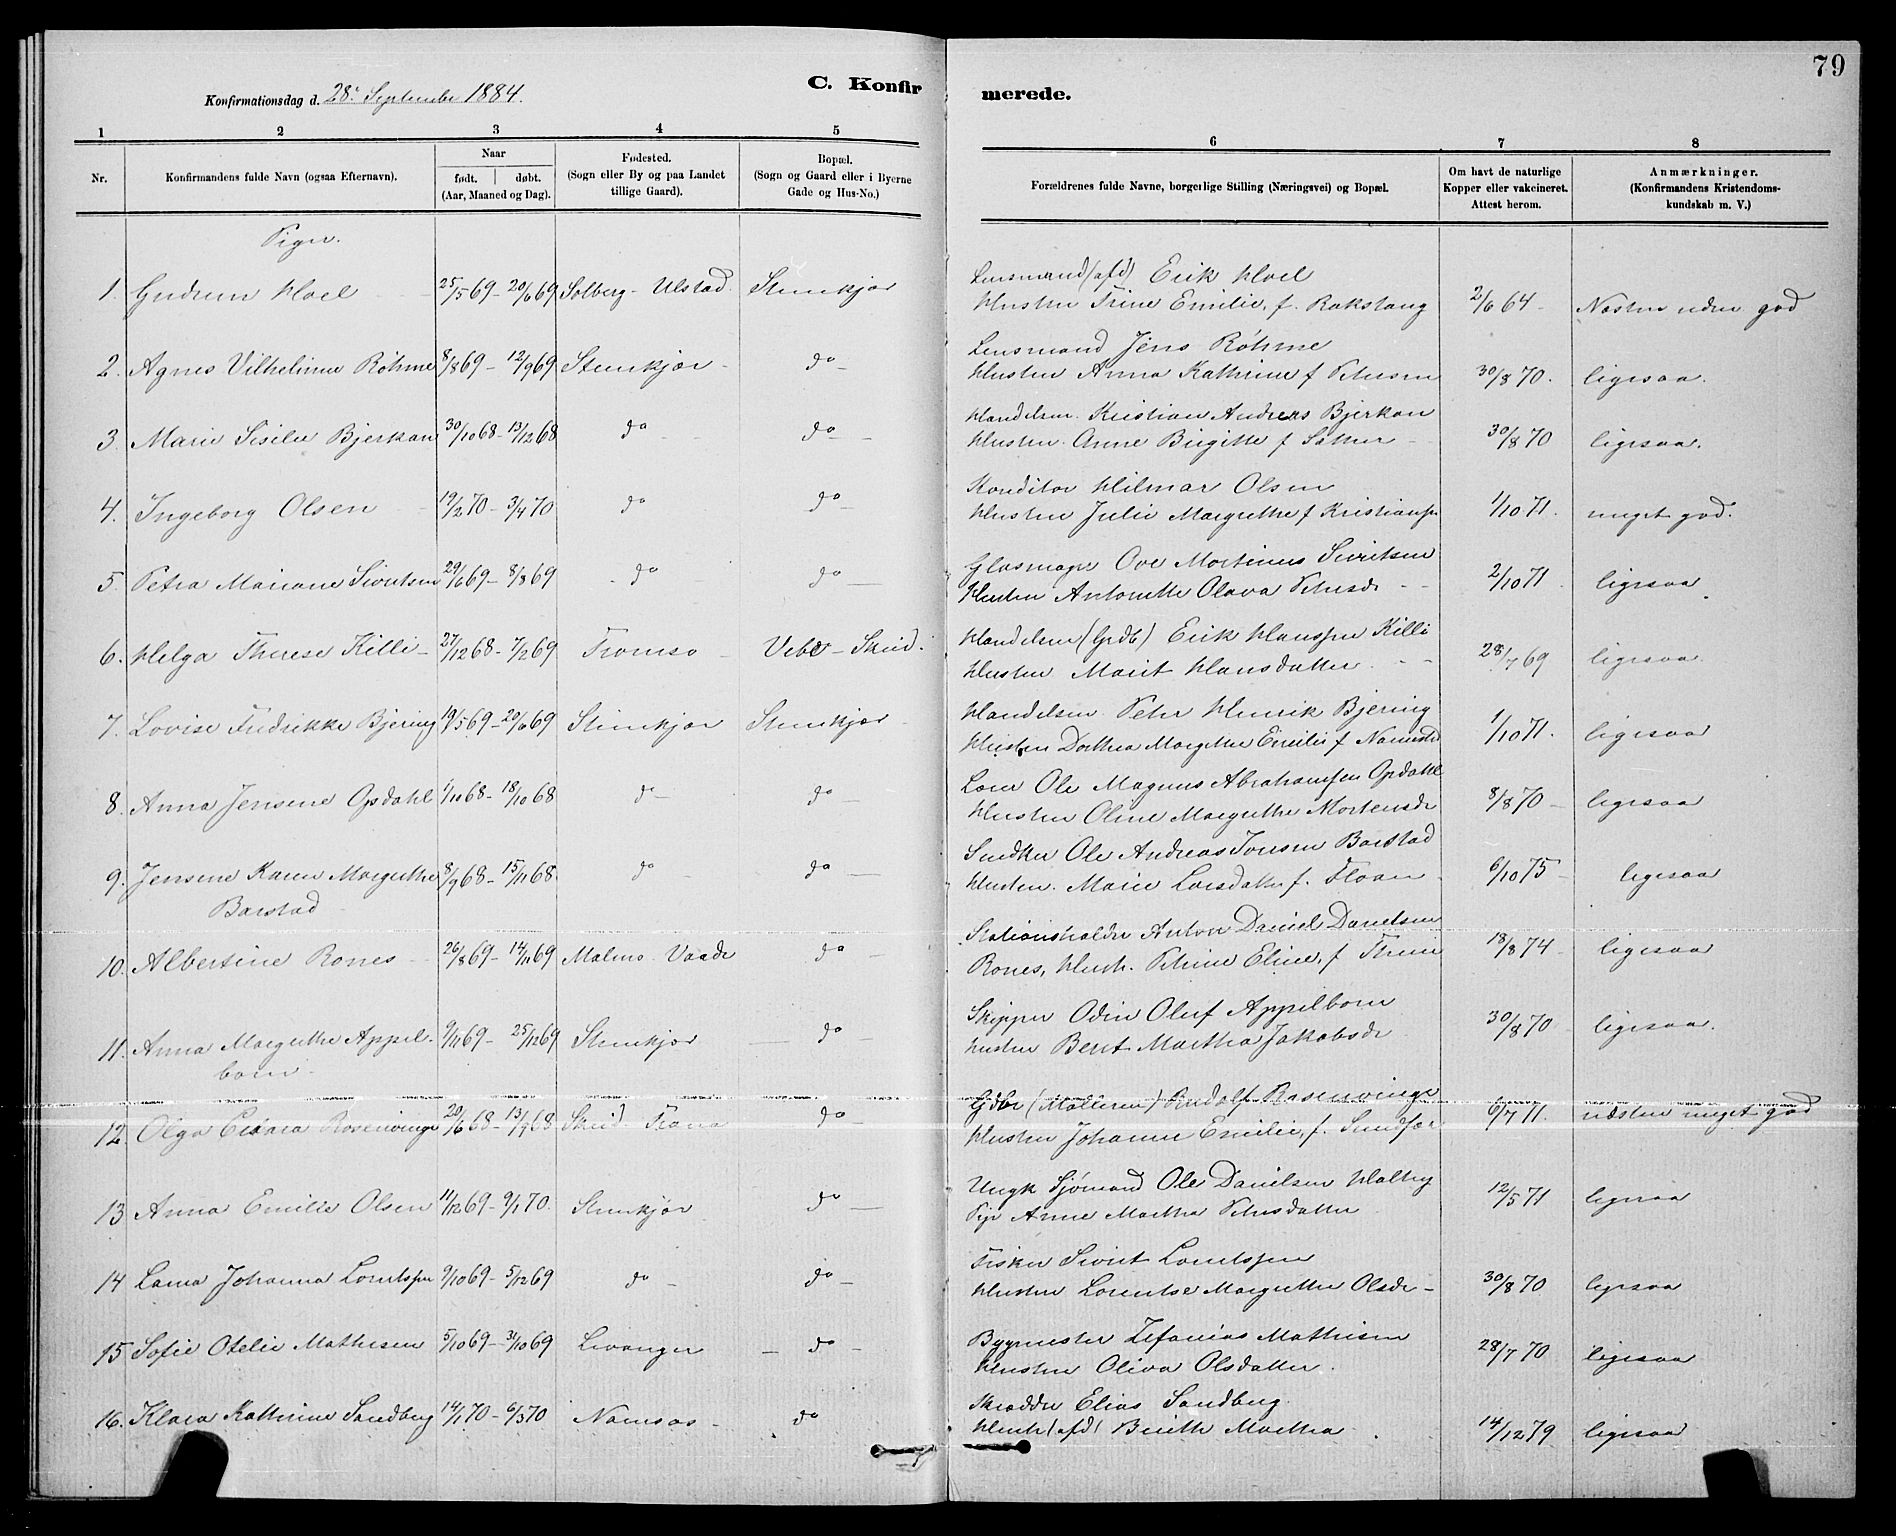 79
Konfirmationsdag d. 28de September 1884.
C. Konfirmerede.
1 2 3 4 5 6 7 8
Nr.
Konfirmandens fulde Navn (ogsaa Efternavn).
Naar
født. døbt.
(Aar, Maaned og Dag).
Fødested.
(Sogn eller By og paa Landet
tillige Gaard).
Bopæl.
(Sogn og Gaard eller i Byerne
Gade og Hus-No.)
Forældrenes fulde Navne, borgerlige Stilling (Næringsvei) og Bopæl.
Om havt de naturlige
Kopper eller vakcineret.
Attest herom.
Anmærkninger.
(Konfirmandens Kristendoms-
kundskab m. V.)
Piger.
1. Gudrun Hoel 25/5 69 - 20/6 69 Solberg - Ulstad. Stenkjær
Lensmand (afd) Erik Hoel
Hustru Trine Emilie, f. Rokstang 2/6 64 - Næsten uden god
2. Agnes Vilhelmine Röhme 8/8 69 - 12/9 69 Stenkjær - do -
Lensmand Jens Röhme
Hustru Anna Kathrine f Petersen 30/8 70. ligesaa.
3. Marie Sisilie Bjerkan 30/10 68 - 13/12 68 do do -
Handelsm. Kristian Andreas Bjerkan
Hustru Anne Birgitte f Sather - 30/8 70 ligesaa.
4. Ingeborg Olsen 19/2 70 - 3/4 70 do do -
Konditor Hilmar Olsen
Hustru Julie Margrethe f Kristiansen 1/10 71. meget god.
5. Petra Mariane Sivertsen 29/6 69 - 8/8 69 do do -
Glasmager Ove Martinus Sivertsen
Hustru Antonette Olava Petersdr 2/10 71 ligesaa
6. Helga Therese Killi - 27/12 68 - 7/2 69 Tromsø - Vibe - Skeid.
Handelsm (Grdb) Erik Hanssen Killi
Hustru Marit Hansdatter 28/7 69 ligesaa
7. Lovise Fredrikke Bjering 19/5 69 - 20/6 69 Stenkjær Stenkjær -
Handelsm. Peter Henrik Bjering
Hustru Dorthea Margrethe Emilie f 1/10 71. ligesaa
8. Anna Jensene Opdahl 1/10 68 - 18/10 68 do - do -
Ole Magnus Abrahamsen Opdahl
Hustru Oline Margrethe Mortensdr 8/8 70 - ligesaa
9. Jensine Karen Margrethe 8/9 68 - 15/11 68 do - do -
Barstad
Snedker Ole Andreas Jonsen Barstad
Hustru. Marie Larsdatter f. Floan - 6/10 75 - ligesaa
10. Albertine Rones 26/8 69 - 14/11 69 Malmo Vaade do -
Stationsholder Anton Daniel Danielsen
Rones, Hust. Petrine Eline, f 18/8 74 - ligesaa
11. Anna Margrethe Appel- 9/11 69 - 25/12 69 Stenkjær do -
bom -
Skipper Odin Oluf Appelbom
Hustru Berit Martha Jakobsdr 30/8 70 - ligesaa.
12 Olga Rosenvinge 20/6 68 - 13/9 68 Skeid Trana do -
Gdbr (Mölleren) Rudolf Rosenvinge
Hustru Johanne Emilie, f. 6/7 71. næsten meget god
13 Anna Emilie Olsen 11/12 69 - 9/1 70. Stenkjær do -
Ungk Sjömand Ole Danielsen
Pige Anne Martha Petersdatter 12/5 71 ligesaa
14 Johanna Lorntssen 9/10 69 - 5/12 69 do - do -
Fisker Sivert Lorntssen
Hustru Lorentse Margrethe Olsdr - 30/8 70 ligesaa
15 Sofie Otelie Mathisen 5/10 69 - 31/10 69 Levanger - do -
Bygmester Zefanias Mathisen
Hustru Oliva Olsdatter. 28/7 70 ligesaa
16. Klara Kathrine Sandberg 14/1 70 - 6/3 70 Namsos - do
Skrædder Elias Sandberg
Hust (afd) Berith Martha 14/12 79 ligesaa